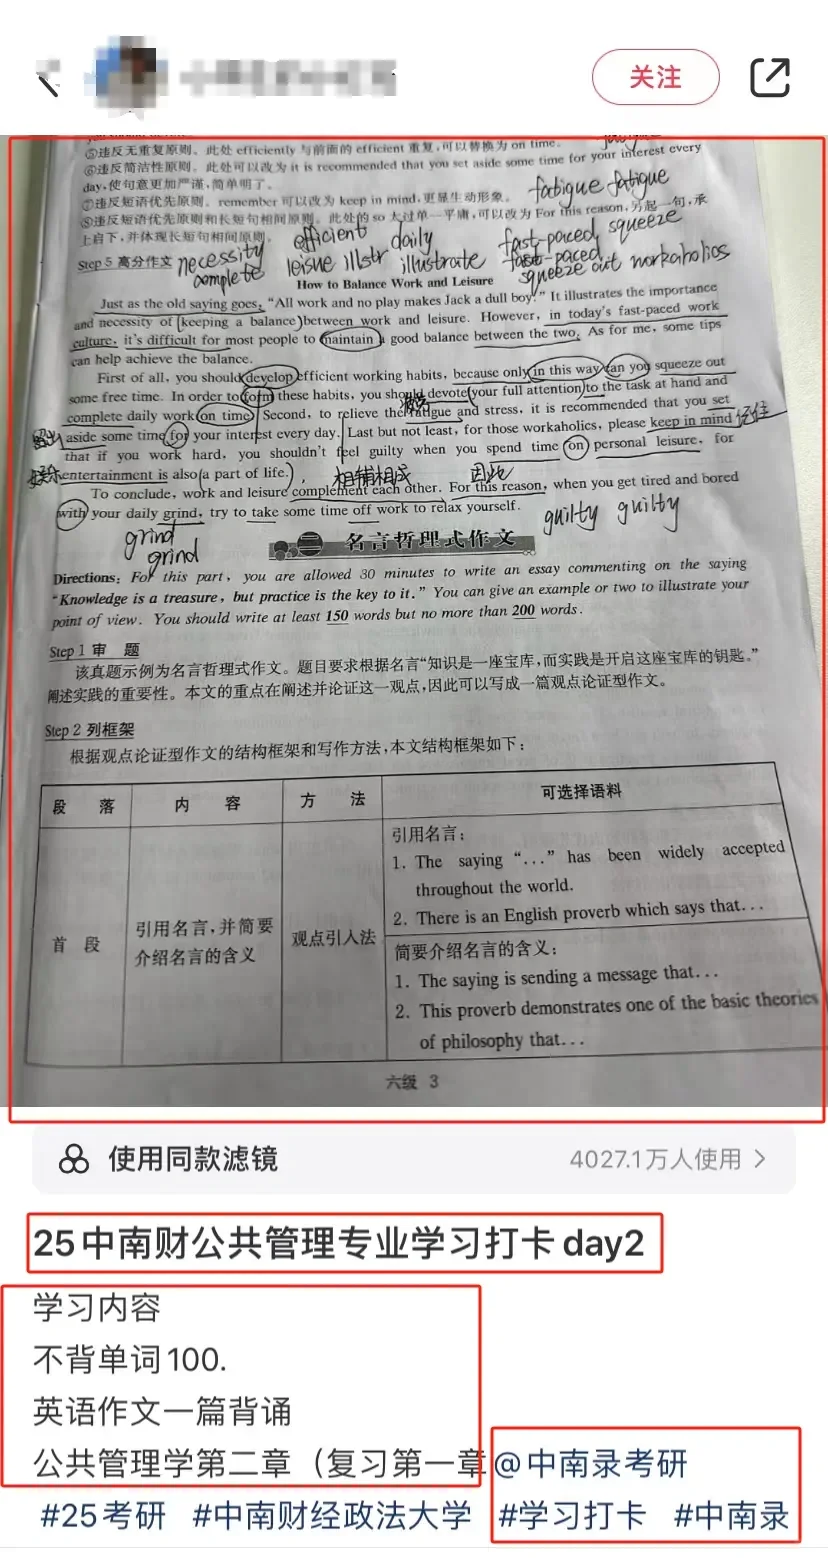 关注
⑤违反无重复原则。此处 efficiently 与前面的 efficient 重复,可以替换为 on time.
⑥违反简洁性原则。此处可以改为 it is recommended that you set aside some time for your interest every
day,使句意更加严谨,简单明了。
⑦违反短语优先原则。remember 可以改为 keep in mind,更显生动形象。
fatigue fatigue
⑧违反短语优先原则和长短句相间原则。此处的 so 太过单一平庸,可以改为 For this reason,另起一句,承
上启下,并体现长短句相间原则。
efficient daily fast-paced squeeze
Step 5 高分作文 necessity leisue illstr illustrate fast-paced
complete squeeze out workaholics
How to Balance Work and Leisure
Just as the old saying goes, “All work and no play makes Jack a dull boy.” It illustrates the importance
and necessity of keeping a balance between work and leisure. However, in today's fast-paced work
culture, it's difficult for most people to maintain a good balance between the two. As for me, some tips
can help achieve the balance.
First of all, you should develop efficient working habits, because only in this way can you squeeze out
some free time. In order to form these habits, you should devote your full attention to the task at hand and
complete daily work on time. Second, to relieve the fatigue and stress, it is recommended that you set
aside some time for your interest every day. Last but not least, for those workaholics, please keep in mind 记住
that if you work hard, you shouldn't feel guilty when you spend time on personal leisure, for
娱乐 entertainment is also a part of life.
相辅相成 因此
To conclude, work and leisure complement each other. For this reason, when you get tired and bored
with your daily grind, try to take some time off work to relax yourself.
grind guilty guilty
grind
名言哲理式作文
Directions: For this part, you are allowed 30 minutes to write an essay commenting on the saying
“Knowledge is a treasure, but practice is the key to it.” You can give an example or two to illustrate your
point of view. You should write at least 150 words but no more than 200 words.
Step 1 审 题
该真题示例为名言哲理式作文。题目要求根据名言“知识是一座宝库,而实践是开启这座宝库的钥匙。”
阐述实践的重要性。本文的重点在阐述并论证这一观点,因此可以写成一篇观点论证型作文。
Step 2 列框架
根据观点论证型作文的结构框架和写作方法,本文结构框架如下:
段 落 内 容 方 法 可选择语料
首 段
引用名言,并简要
介绍名言的含义
观点引入法
引用名言:
1. The saying “...” has been widely accepted
throughout the world.
2. There is an English proverb which says that...
简要介绍名言的含义:
1. The saying is sending a message that...
2. This proverb demonstrates one of the basic theories
of philosophy that...
六级 3
使用同款滤镜 4027.1万人使用
25中南财公共管理专业学习打卡day2
学习内容
不背单词100.
英语作文一篇背诵
公共管理学第二章（复习第一章@中南录考研
#25考研 #中南财经政法大学 #学习打卡 #中南录